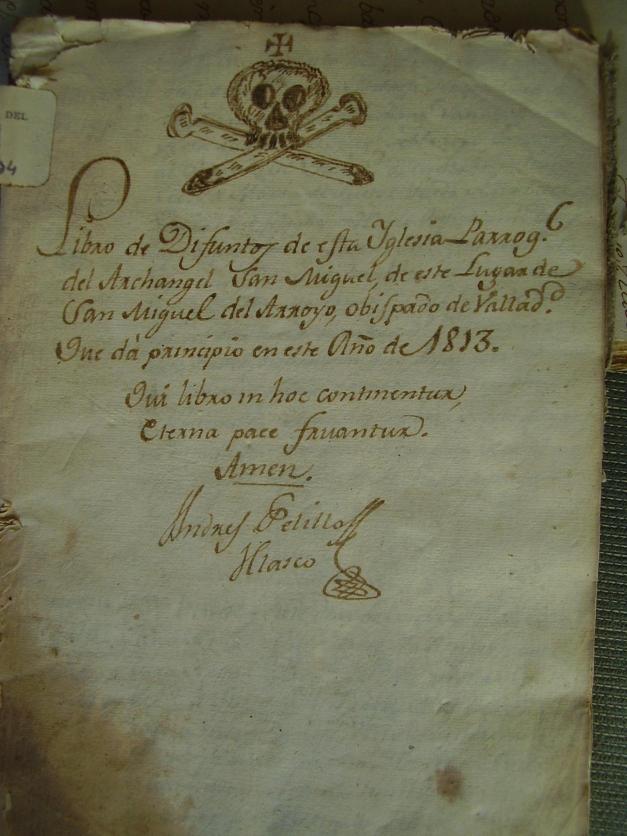 DEL
04
Libro de Difuntos de esta Yglesia Parroq.l
del Archangel San Miguel, de este Lugar de
San Miguel del Arroyo, obispado de Vallad.d
Que dà principio en este Año de 1813.
Qui libro in hoc continentur,
Eterna pace fruantur.
Amen.
Andres Velasco